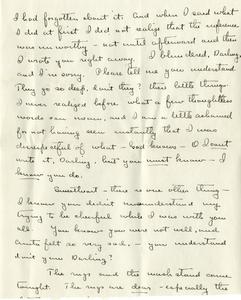 I had forgotten about it. And when I said what
I did at first I did not realize that the inference
was unworthy - not until afterward and then
I wrote you right away. I blundered, Darling,
and I'm sorry. Please tell me you understand.
They go so deep, don't they? these little things.
I never realized before what a few thoughtless
words can mean, and I am a little ashamed
for not having seen instantly that I was
disrespectful of what - God knows - I can't
write it, Darling, but you must know - I
know you do.
Sweetheart - there is one other thing -
I know you didn't misunderstand my
trying to be cheerful while I was with you
all. You knew you were not well, and
Aunt felt so very sad, - you understand
don't you Darling?
The rugs and the wash stand came
tonight. The rugs are dear - especially the